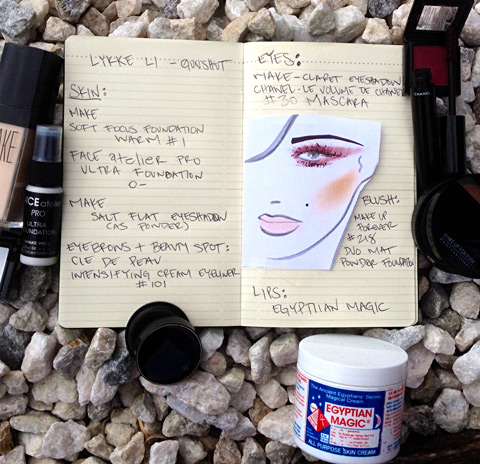 LYKKE LI - GUNSHOT
SKIN:
MAKE
SOFT FOCUS FOUNDATION
WARM #1
FACE atelier PRO
ULTRA FOUNDATION
0-
MAKE
SALT FLAT EYESHADOW
(AS POWDER)
EYEBROWS + BEAUTY SPOT:
CLE DE PEAU
INTENSIFYING CREAM EYELINER
#101
EYES:
MAKE - CLARET EYESHADOW
CHANEL - LE VOLUME DE CHANEL
#30 MASCARA
BLUSH:
MAKE UP
FOREVER
#218
DUO MAT
POWDER FOUNDATION
LIPS:
EGYPTIIAN MAGIC
MAKE
FACE atelier
PRO
ULTRA
FOUNDATION
CHANEL
The Ancient Egyptians' Secret
Magical Cream
EGYPTIAN
MAGIC
ALL PURPOSE SKIN CREAM